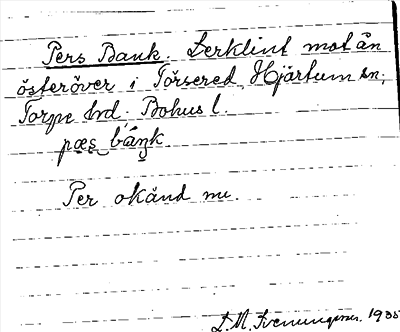 Pers Bank. Lerklint mot ån
österöver i Torsered, Hjärtum sn,
Torpe hrd. Bohus l.
pæs bánk
Per okänd nu.
1935